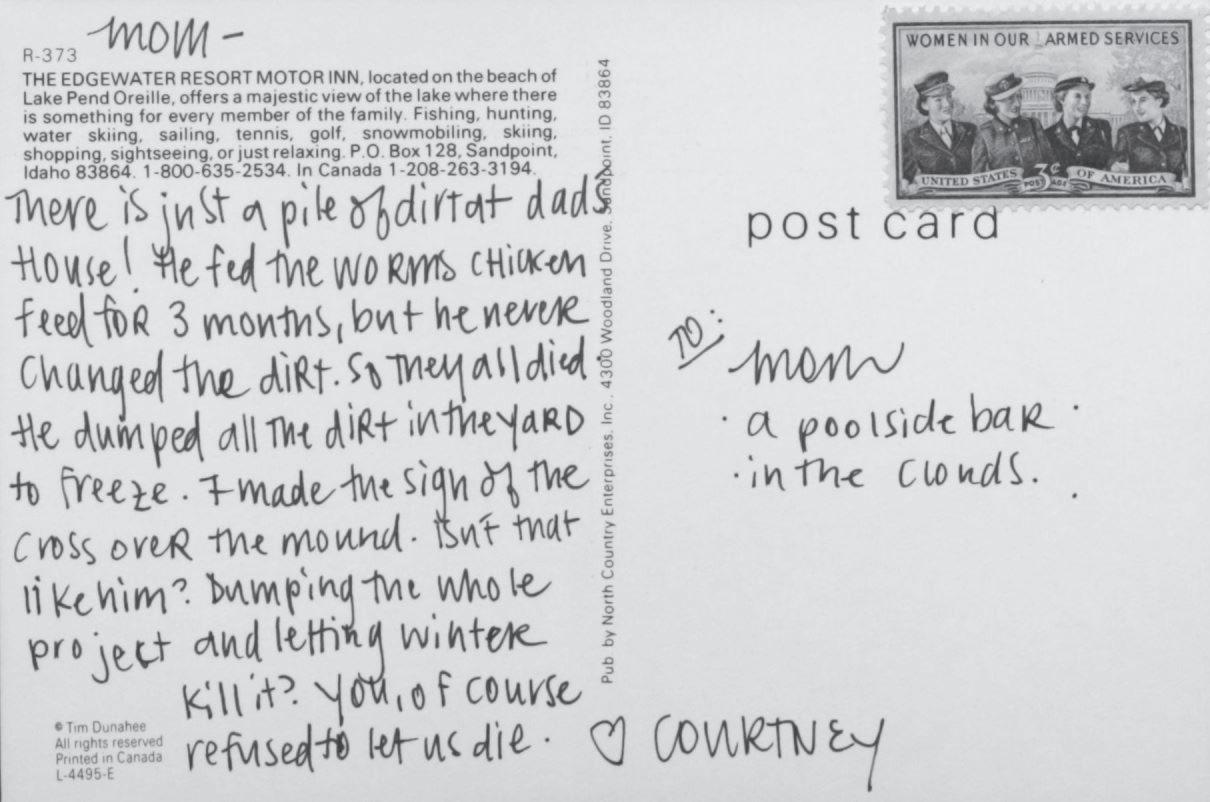 mom -
R-373
THE EDGEWATER RESORT MOTOR INN, located on the beach of
Lake Pend Oreille, offers a majestic view of the lake where there
is something for every member of the family. Fishing, hunting,
water skiing, sailing, tennis, golf, snowmobiling, skiing,
shopping, sightseeing, or just relaxing. P.O. Box 128, Sandpoint,
Idaho 83864. 1-800-635-2534. In Canada 1-208-263-3194.
There is just a pile of dirt at dads
House! He fed the worms chicken
feed for 3 months, but he never
changed the dirt. So they all died.
He dumped all the dirt in the yard
to freeze. I made the sign of the
cross over the mound. Isn't that
like him? Dumping the whole
project and letting winter
kill it? You, of course
refused to let us die.
♡ COURTNEY
© Tim Dunahee
All rights reserved
Printed in Canada
L-4495-E
Pub. by North Country Enterprises, Inc., 4300 Woodland Drive, Sandpoint, ID 83864
WOMEN IN OUR ARMED SERVICES
UNITED STATES 3¢ OF AMERICA
POST AGE
post card
TO:
mom
· a poolside bar ·
· in the clouds. ·